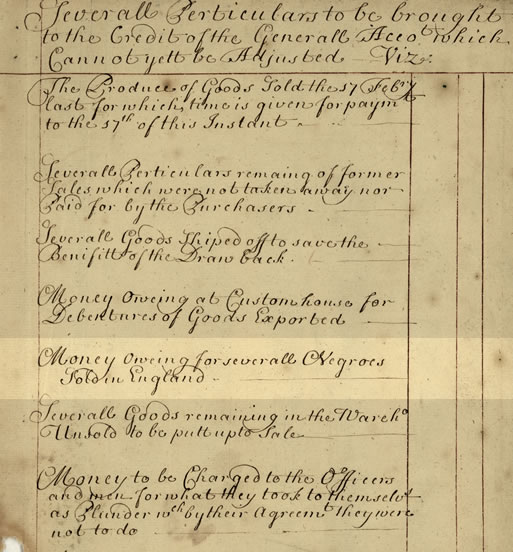 Severall Perticulars to be brought
to the Credit of the Generall Accot which
Cannot yett be Adjusted Viz:
The Produce of Goods Sold the 17 Febry
last for which time is given for paymt
to the 17th of this Instant
Severall Perticulars remaing of former
Sales which were not taken away nor
Paid for by the Purchasers
Severall Goods Shiped off to save the
Benifitt of the Draw back.
Money Oweing at Customhouse for
Debentures of Goods Exported
Money oweing for severall Negroes
Sold in England
Severall Goods remaining in the Wareho
Unsold to be putt up to Sale
Money to be Charged to the Officers
and men for what they took to themselvs
as Plunder wch by their Agreemt they were
not to do